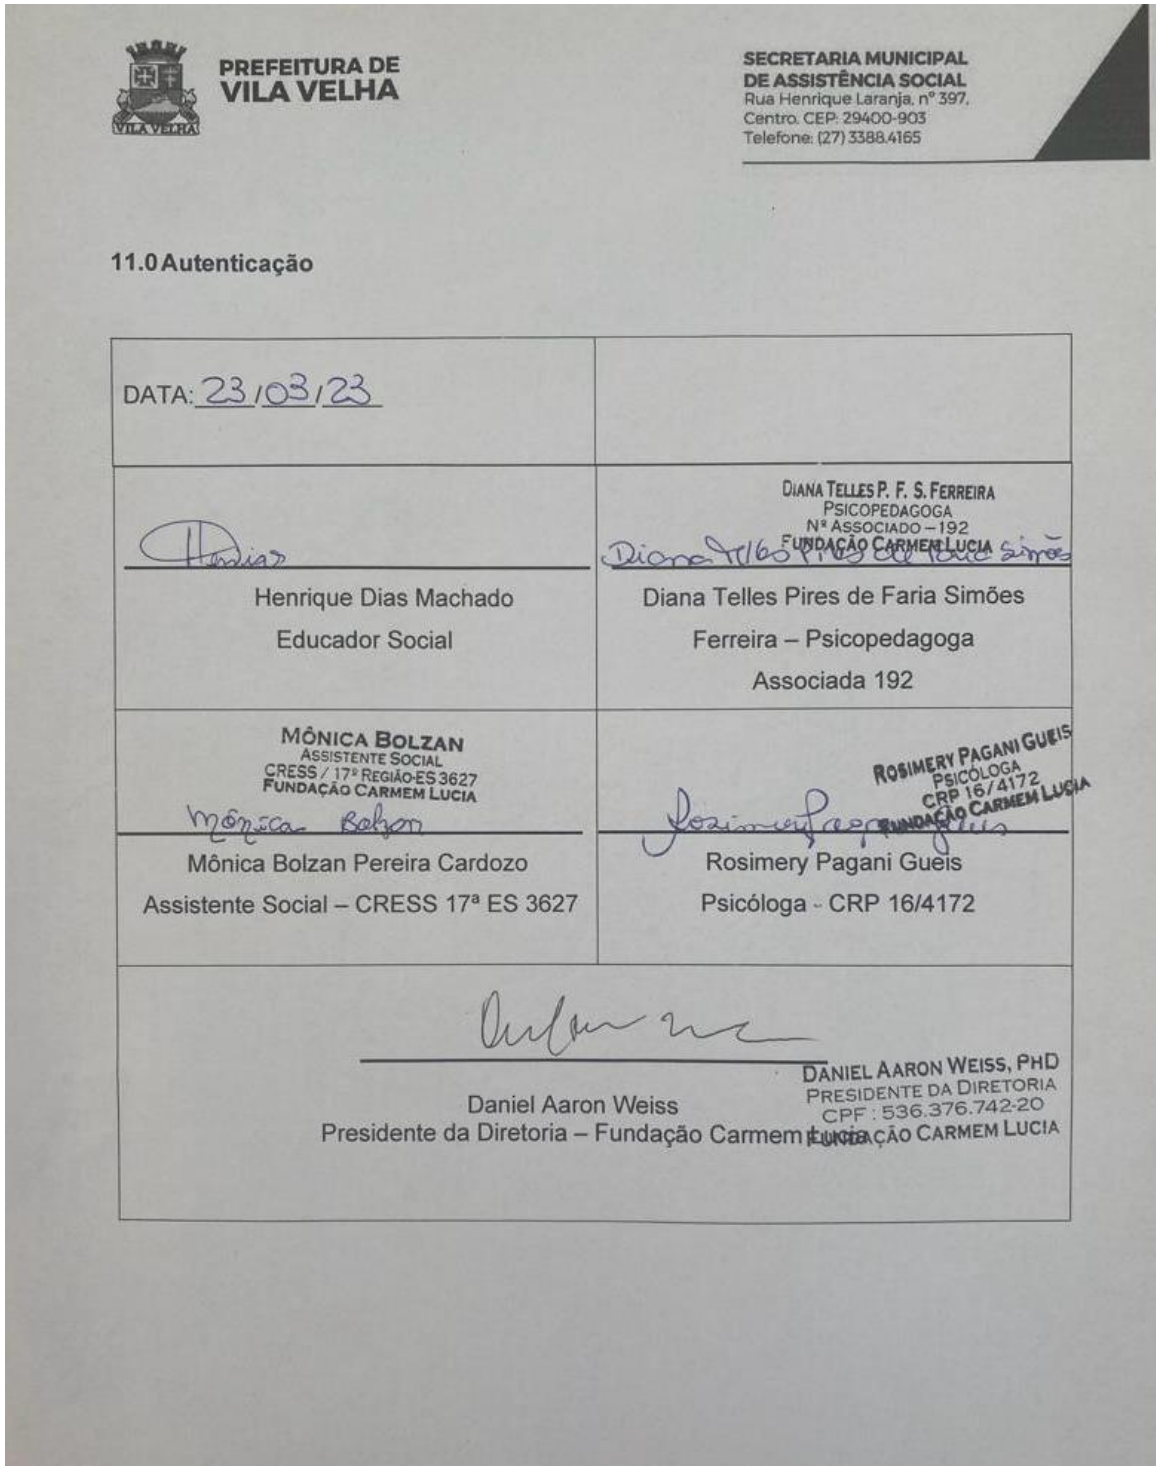 PREFEITURA DE
VILA VELHA
VILA VELHA
SECRETARIA MUNICIPAL
DE ASSISTÊNCIA SOCIAL
Rua Henrique Laranja, nº 397,
Centro. CEP: 29400-903
Telefone: (27) 3388.4165
11.0 Autenticação
DATA: 23/03/23
DIANA TELLES P. F. S. FERREIRA
PSICOPEDAGOGA
Nº ASSOCIADO – 192
FUNDAÇÃO CARMEM LUCIA
HDias
Diana Telles Pires de Faria Simões
Henrique Dias Machado
Educador Social
Diana Telles Pires de Faria Simões
Ferreira – Psicopedagoga
Associada 192
MÔNICA BOLZAN
ASSISTENTE SOCIAL
CRESS / 17ª REGIÃO-ES 3627
FUNDAÇÃO CARMEM LUCIA
Mônica Bolzan
Mônica Bolzan Pereira Cardozo
Assistente Social – CRESS 17ª ES 3627
ROSIMERY PAGANI GUEIS
PSICÓLOGA
CRP 16/4172
FUNDAÇÃO CARMEM LUCIA
Rosimery Pagani Gueis
Rosimery Pagani Gueis
Psicóloga - CRP 16/4172
Daniel Aaron Weiss
Presidente da Diretoria – Fundação Carmem Lucia
DANIEL AARON WEISS, PHD
PRESIDENTE DA DIRETORIA
CPF : 536.376.742-20
FUNDAÇÃO CARMEM LUCIA